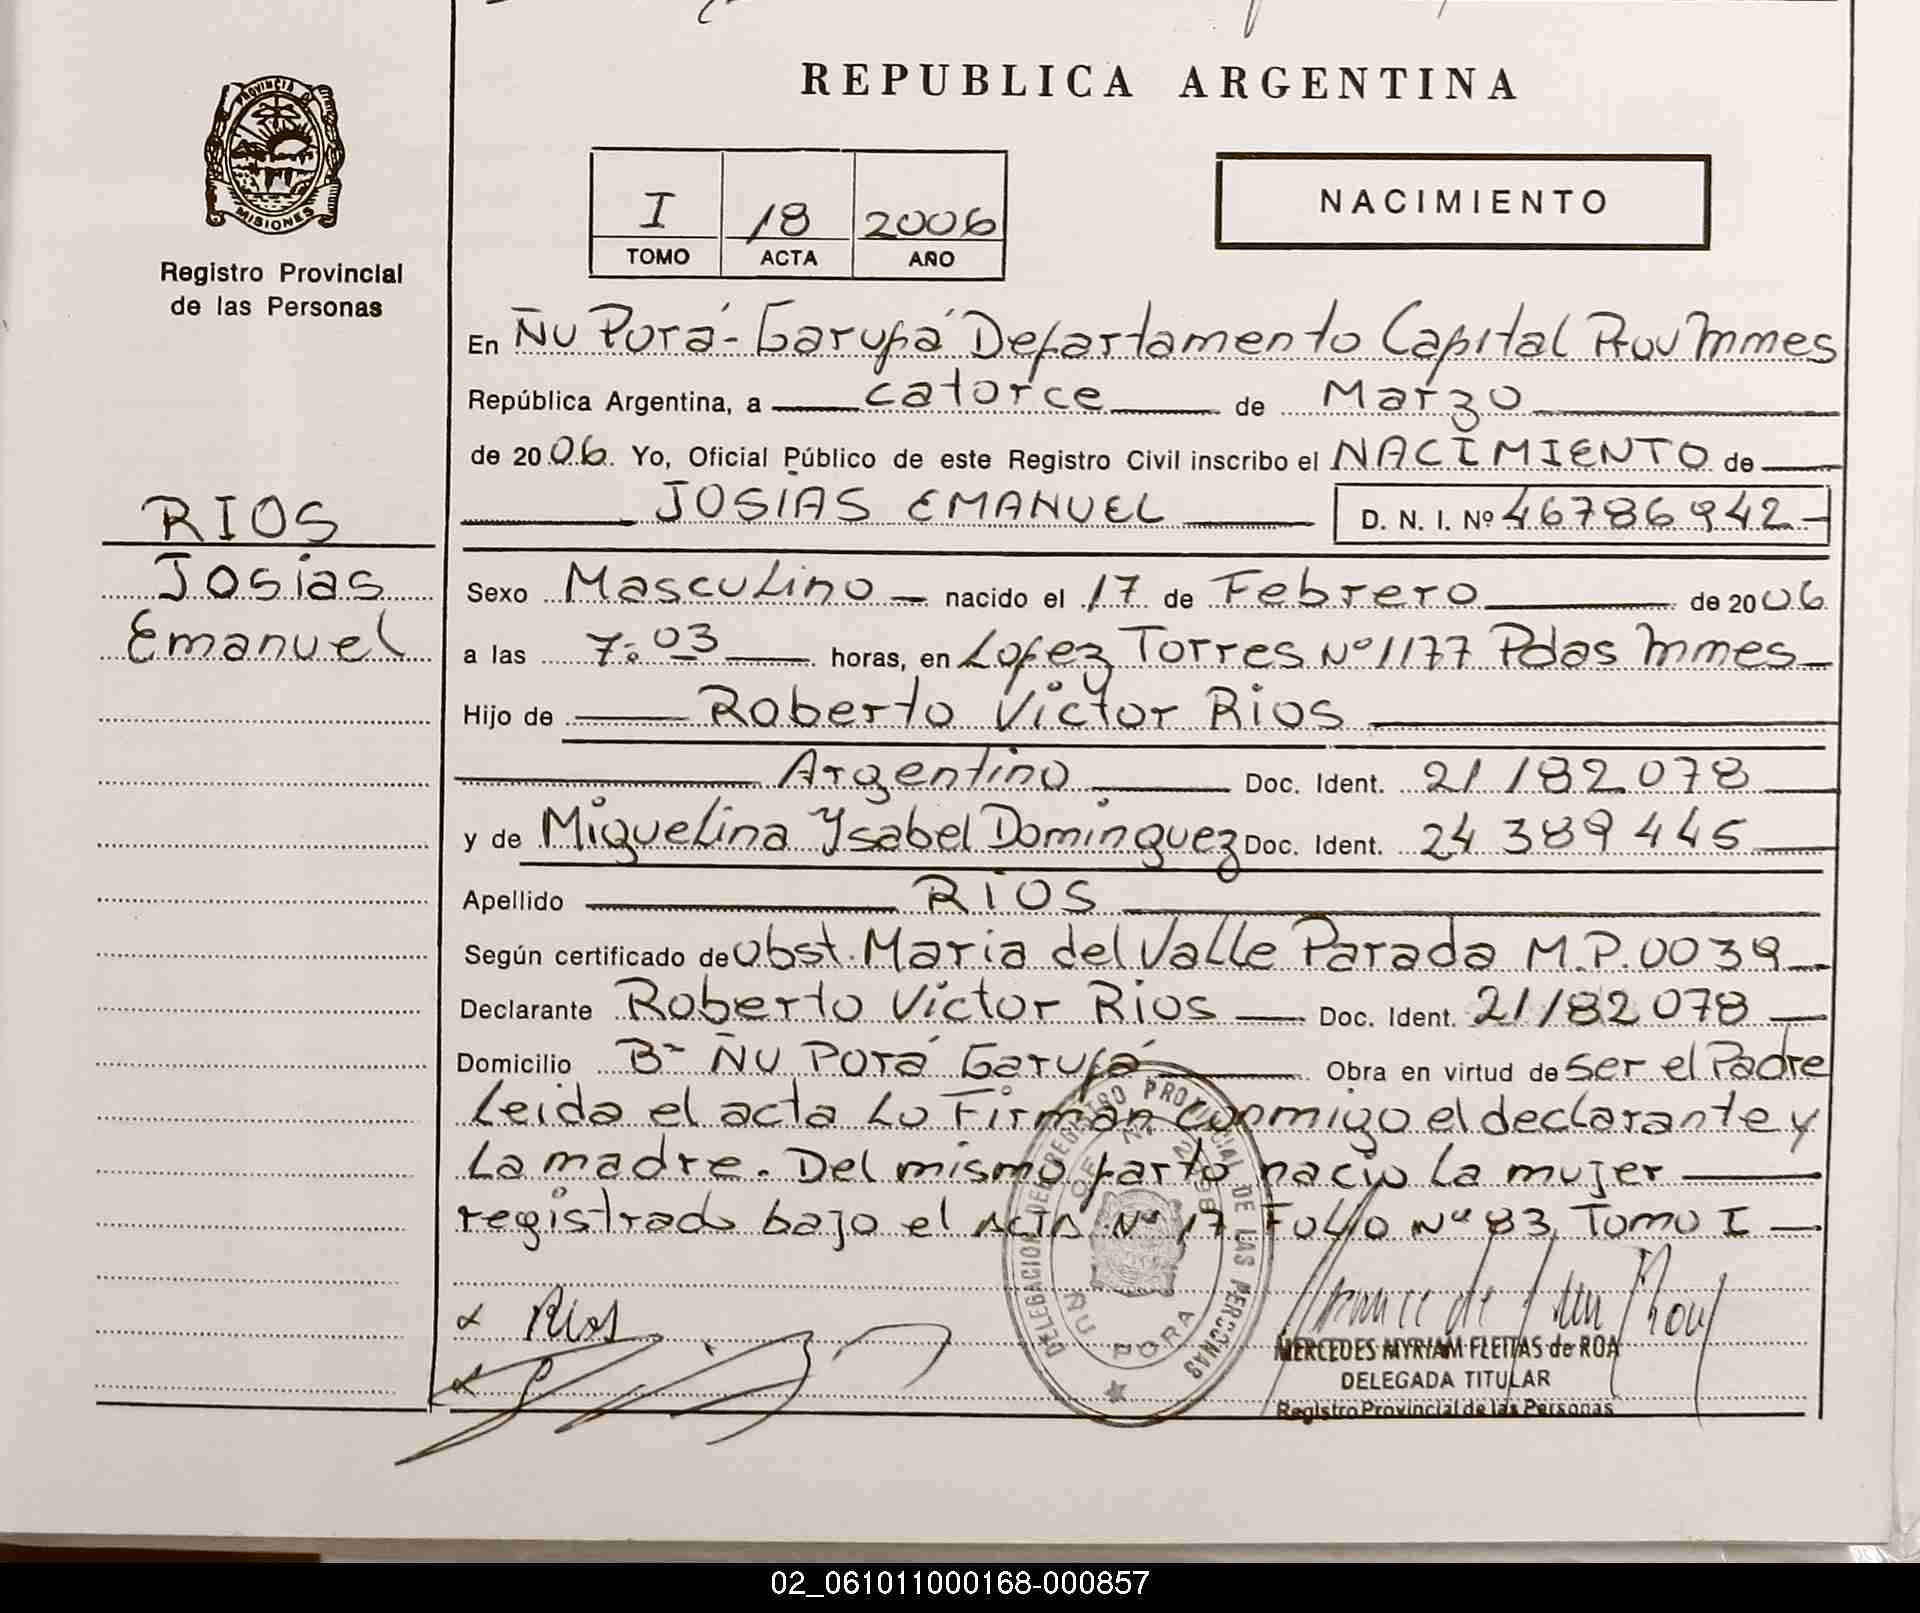 PROVINCIA D
MISIONES
Registro Provincial
de las Personas
REPUBLICA ARGENTINA
I 18 2006
TOMO ACTA AÑO
NACIMIENTO
En Ñu Porá - Garupá Departamento Capital Prov Mmes
República Argentina, a catorce de Marzo
de 2006. Yo, Oficial Público de este Registro Civil inscribo el NACIMIENTO de
JOSIAS EMANUEL D. N. I. Nº 46786942
RIOS
Josias
Emanuel
Sexo Masculino nacido el 17 de Febrero de 2006
a las 7:03 horas, en Lopez Torres Nº 1177 Pdas Mmes
Hijo de Roberto Victor Rios
Argentino Doc. Ident. 21182078
y de Miguelina Ysabel Dominguez Doc. Ident. 24389445
Apellido RIOS
Según certificado de Obst. Maria del Valle Parada M.P. 0039
Declarante Roberto Victor Rios Doc. Ident. 21182078
Domicilio Bº Ñu Porá Garupá Obra en virtud de ser el Padre
Leida el acta Lo Firman conmigo el declarante y
La madre. Del mismo parto nacio La mujer
registrado bajo el Acta Nº 17 Folio Nº 83 Tomo I
DELEGACION DEL REGISTRO PROVINCIAL DE LAS PERSONAS
ÑU PORA
Rios
MERCEDES MYRIAM FLEITAS de ROA
DELEGADA TITULAR
Registro Provincial de las Personas
02_061011000168-000857